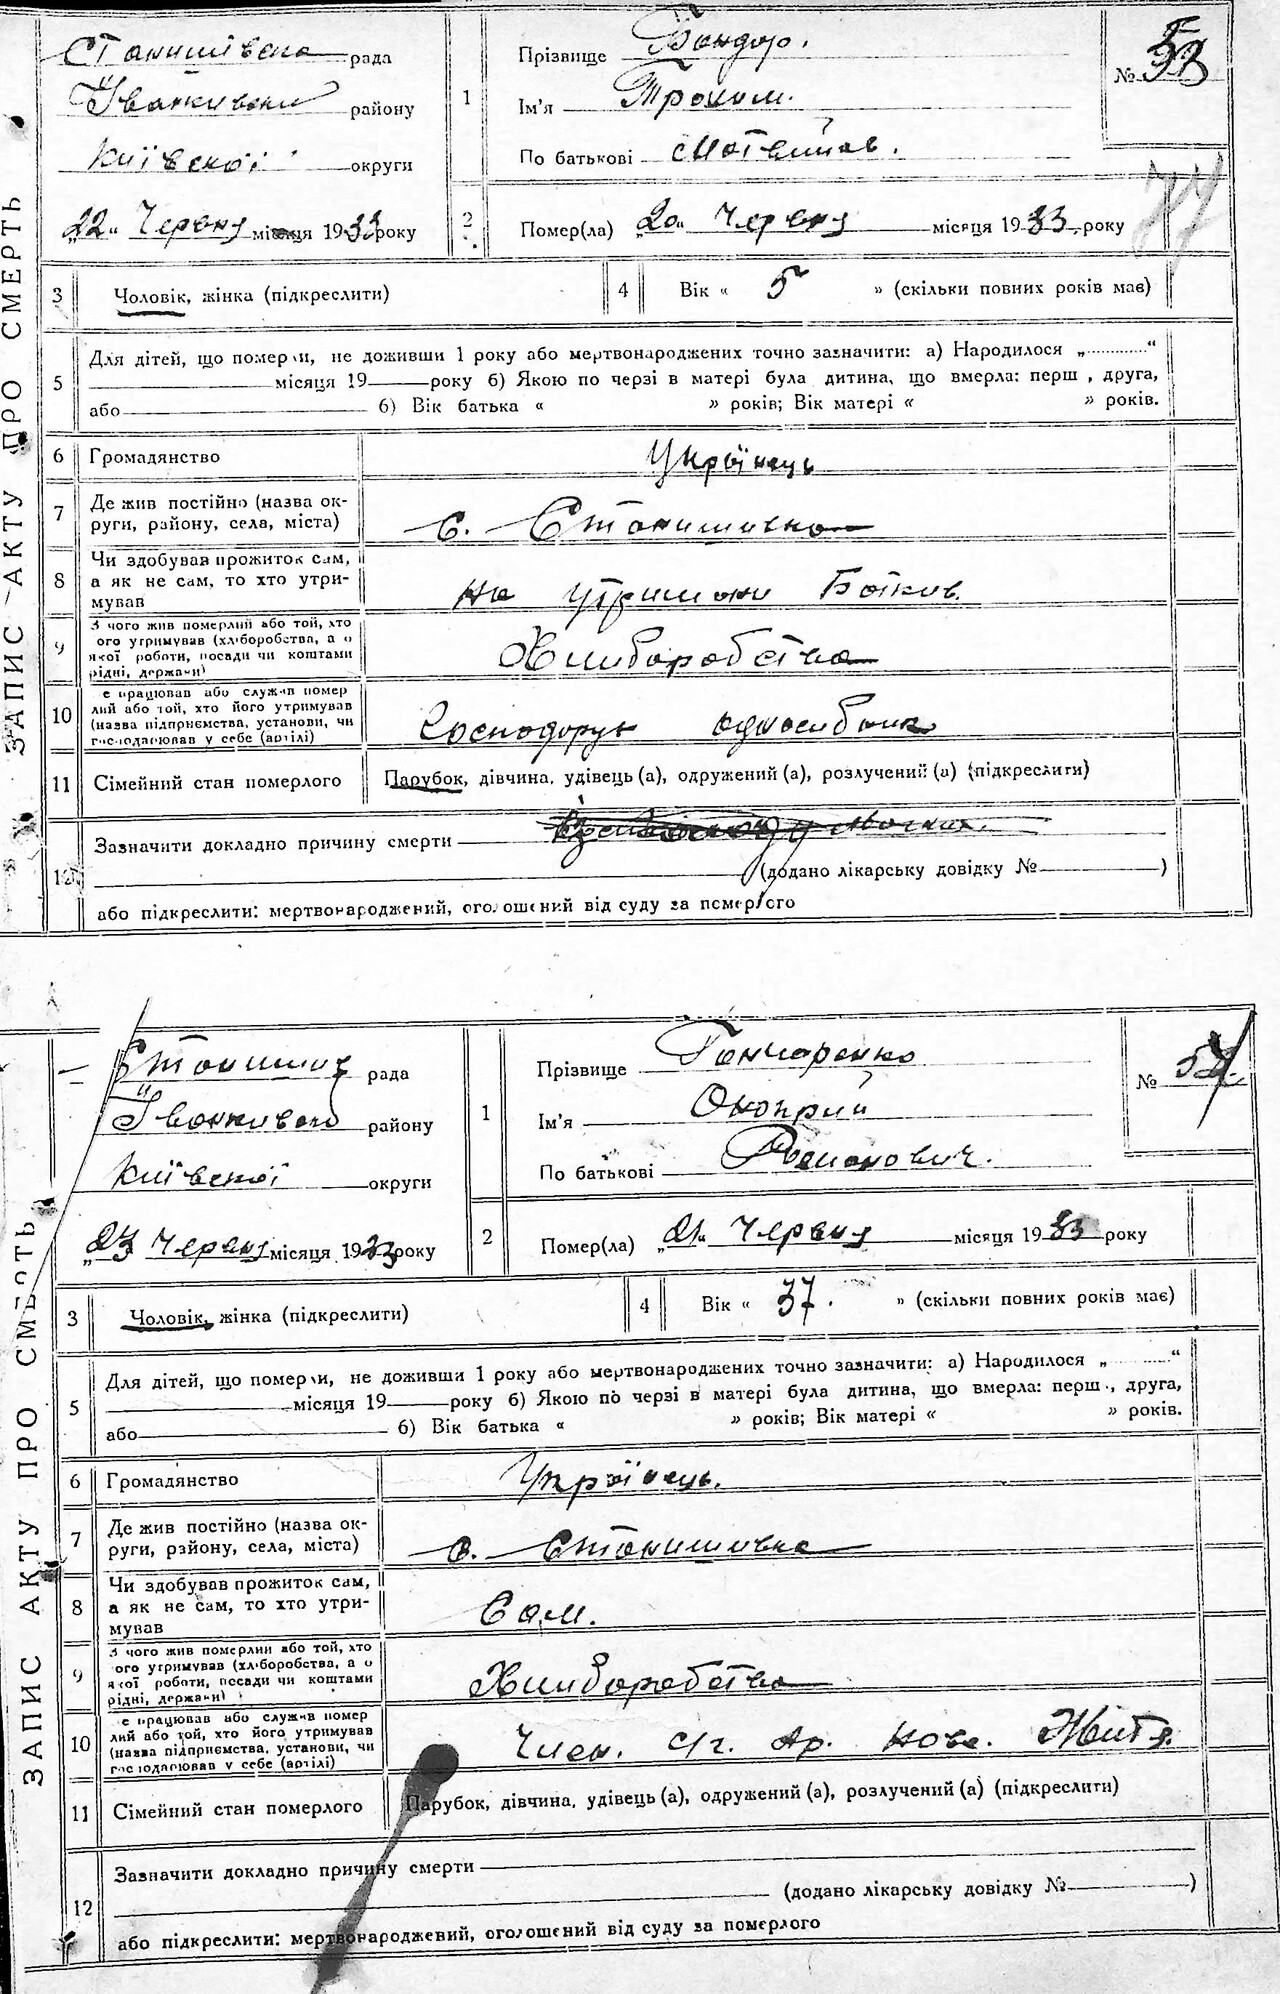 ЗАПИС АКТУ ПРО СМЕРТЬ
Станишівська рада
Іванківський району
Київської округи
„22“ Червня місяця 1933 року
1
Прізвище Бондар.
Ім'я Трохим.
По батькові Матвійов.
№ 53
77
2
Помер(ла) „20“ Червня місяця 1933 року
3 Чоловік, жінка (підкреслити)
4 Вік « 5 » (скільки повних років має)
5
Для дітей, що померли, не доживши 1 року або мертвонароджених точно зазначити: а) Народилося „..........“
місяця 19 року б) Якою по черзі в матері була дитина, що вмерла: перш , друга,
або б) Вік батька « » років; Вік матері « » років.
6 Громадянство Украінець
7 Де жив постійно (назва ок-
руги, району, села, міста) с. Станишивка
8 Чи здобував прожиток сам,
а як не сам, то хто утри-
мував на утримани Батків.
9 З чого жив померлий або той, хто
ого утримував (хліборобства, а о
якої роботи, посади чи коштами
рідні, держави) Хлиборобства
10 е працював або служив помер
лий або той, хто його утримував
(назва підприємства, установи, чи
господарював у себе (артілі) Господорує односибник
11 Сімейний стан померлого Парубок, дівчина, удівець(а), одружений(а), розлучений(а) (підкреслити)
12 Зазначити докладно причину смерти
(додано лікарську довідку № )
або підкреслити: мертвонароджений, оголошений від суду за померлого
ЗАПИС АКТУ ПРО СМЕРТЬ
Станишив рада
Іванкивсько району
Київської округи
„23 Червня місяця 1933 року
1
Прізвище Гончаренко
Ім'я Онопрій
По батькові Романович.
№ 54
2
Помер(ла) „21“ Червня місяця 1933 року
3 Чоловік, жінка (підкреслити)
4 Вік « 37. » (скільки повних років має)
5
Для дітей, що померли, не доживши 1 року або мертвонароджених точно зазначити: а) Народилося „..........“
місяця 19 року б) Якою по черзі в матері була дитина, що вмерла: перш , друга,
або б) Вік батька « » років; Вік матері « » років.
6 Громадянство Украінець.
7 Де жив постійно (назва ок-
руги, району, села, міста) с. Станишивка
8 Чи здобував прожиток сам,
а як не сам, то хто утри-
мував Сам.
9 З чого жив померлий або той, хто
ого утримував (хліборобства, а о
якої роботи, посади чи коштами
рідні, держави) Хлиборобства
10 е працював або служив помер
лий або той, хто його утримував
(назва підприємства, установи, чи
господарював у себе (артілі) Член. с/г. Ар. Нове. Життя.
11 Сімейний стан померлого Парубок, дівчина, удівець(а), одружений(а), розлучений(а) (підкреслити)
12 Зазначити докладно причину смерти
(додано лікарську довідку № )
або підкреслити: мертвонароджений, оголошений від суду за померлого